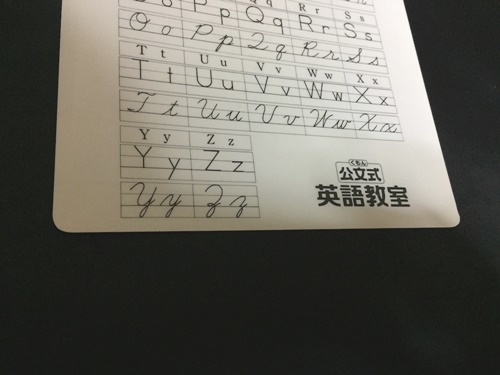 Qq Rr Ss
O o P p Q q R r S s
O o P p Q q R r S s
T t U u V v W w X x
T t U u V v W w X x
T t U u V v W w X x
Y y Z z
Y y Z z
Y y Z z
くもん
公文式
英語教室